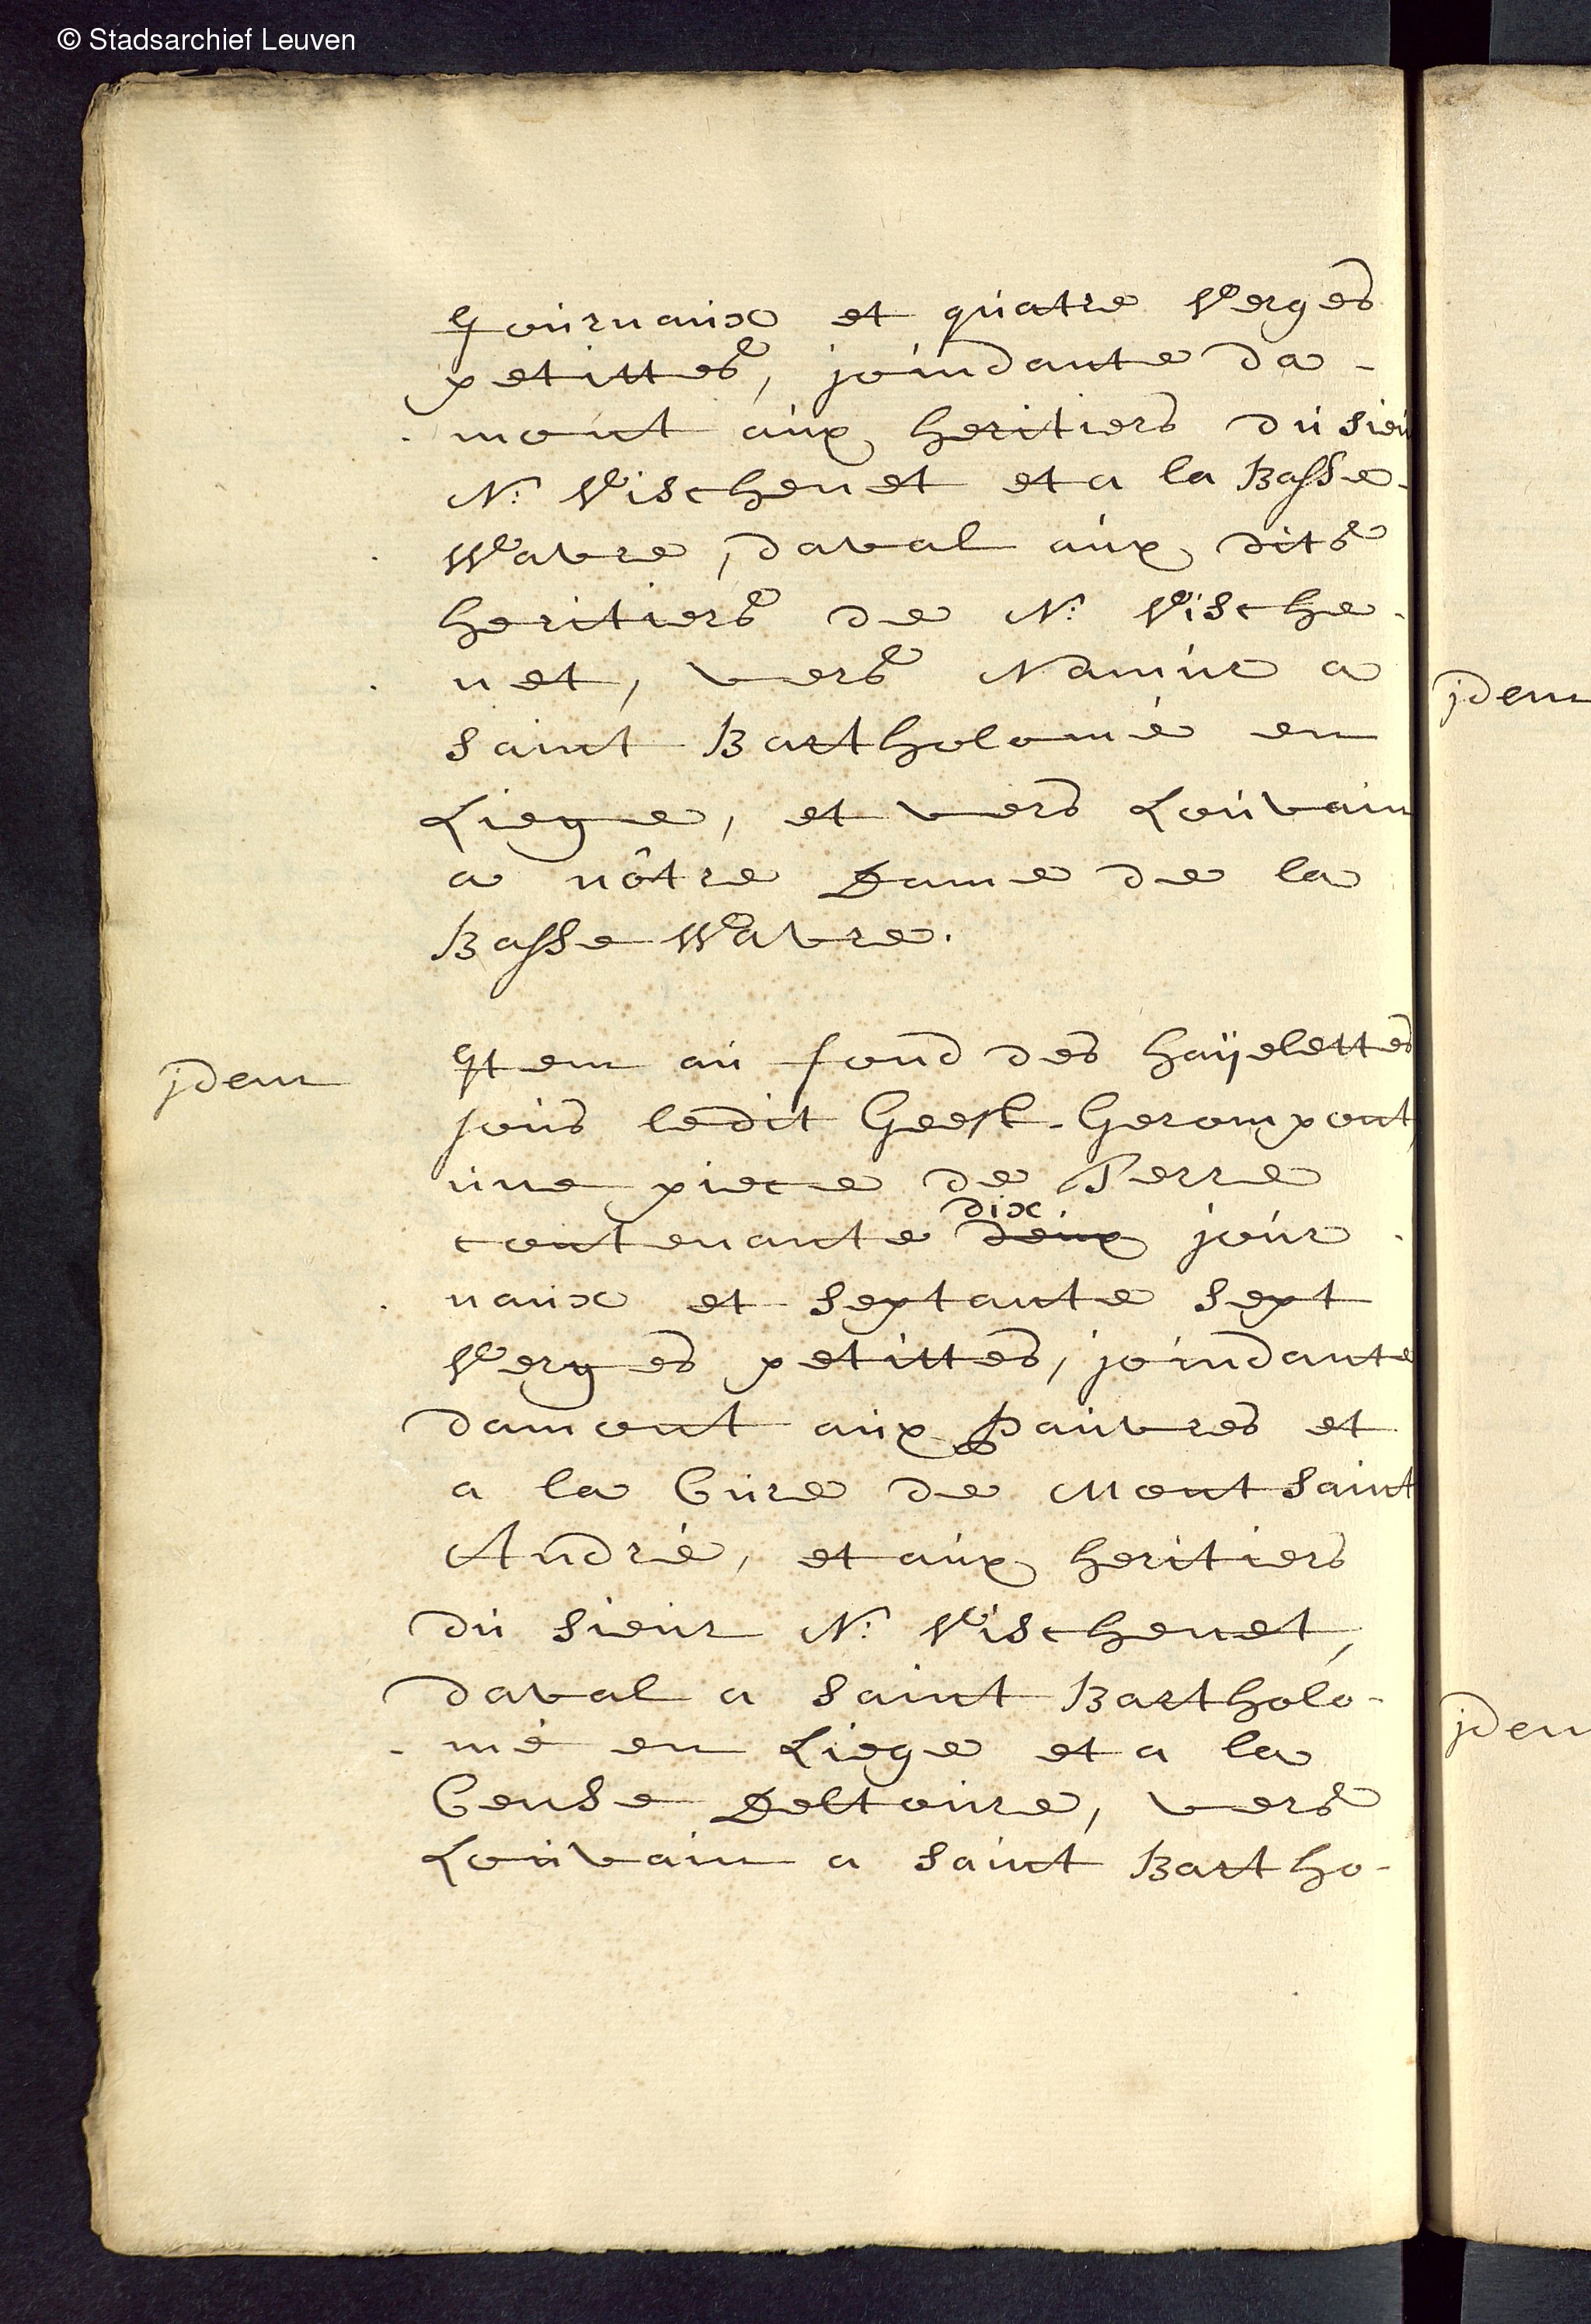 © Stadsarchief Leuven
Journaux et quatre Verges
petittes, joindante da-
mont aux heritiers du sieu
N: Vischenet et a la Basse-
Wavre, daval aux dits
heritiers de N: Vische-
net, vers Namur a
saint Bartholomé en
Liege, et vers Louvain
a nôtre Dame de la
Basse Wavre.
jdem
Jtem au fond des haÿelettes
sous ledit Geest-Gerompont,
une piece de Terre
dix
contenante deux jour-
naux et septante sept
Verges petittes, joindante
damont aux pauvres et
a la Cure de Mont saint
André, et aux heritiers
du sieur N: Vischenet,
daval a saint Bartholo-
mé en Liege et a la
Cense Deltoure, vers
Louvain a saint Bartho-
jdem
jdem